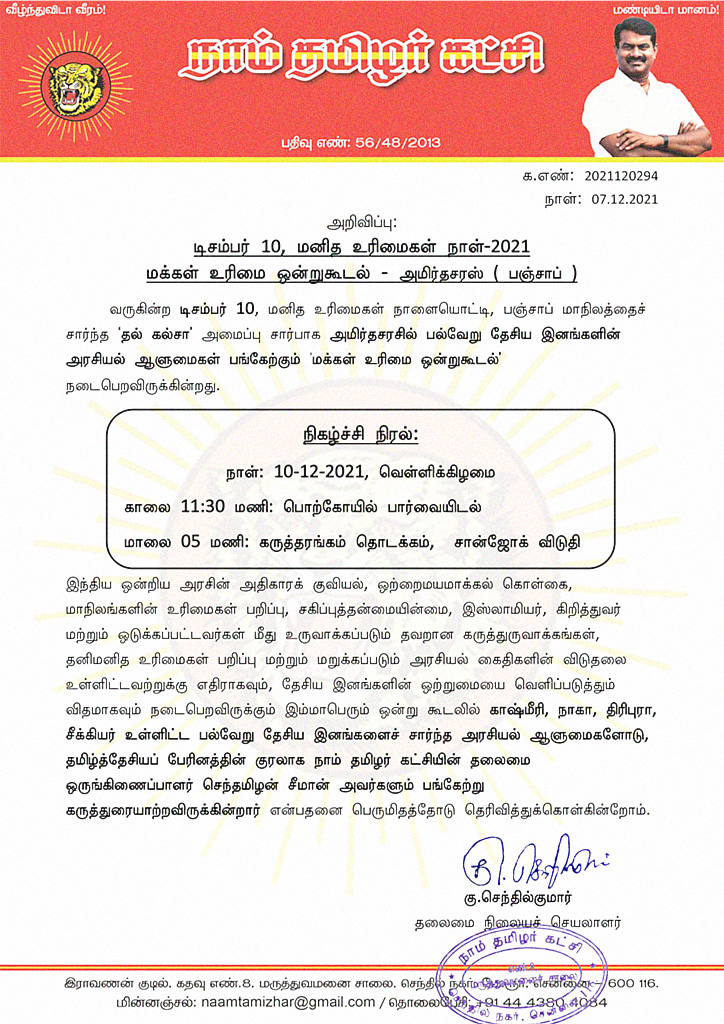 வீழ்ந்துவிடா வீரம்!
மண்டியிடா மானம்!
நாம் தமிழர் கட்சி
பதிவு எண்: 56/48/2013
க.எண்: 2021120294
நாள்: 07.12.2021
அறிவிப்பு:
டிசம்பர் 10, மனித உரிமைகள் நாள்-2021
மக்கள் உரிமை ஒன்றுகூடல் - அமிர்தசரஸ் ( பஞ்சாப் )
வருகின்ற டிசம்பர் 10, மனித உரிமைகள் நாளையொட்டி, பஞ்சாப் மாநிலத்தைச்
சார்ந்த 'தல் கல்சா' அமைப்பு சார்பாக அமிர்தசரசில் பல்வேறு தேசிய இனங்களின்
அரசியல் ஆளுமைகள் பங்கேற்கும் 'மக்கள் உரிமை ஒன்றுகூடல்'
நடைபெறவிருக்கின்றது.
நிகழ்ச்சி நிரல்:
நாள்: 10-12-2021, வெள்ளிக்கிழமை
காலை 11:30 மணி: பொற்கோயில் பார்வையிடல்
மாலை 05 மணி: கருத்தரங்கம் தொடக்கம், சான்ஜோக் விடுதி
இந்திய ஒன்றிய அரசின் அதிகாரக் குவியல், ஒற்றைமயமாக்கல் கொள்கை,
மாநிலங்களின் உரிமைகள் பறிப்பு, சகிப்புத்தன்மையின்மை, இஸ்லாமியர், கிறித்துவர்
மற்றும் ஒடுக்கப்பட்டவர்கள் மீது உருவாக்கப்படும் தவறான கருத்துருவாக்கங்கள்,
தனிமனித உரிமைகள் பறிப்பு மற்றும் மறுக்கப்படும் அரசியல் கைதிகளின் விடுதலை
உள்ளிட்டவற்றுக்கு எதிராகவும், தேசிய இனங்களின் ஒற்றுமையை வெளிப்படுத்தும்
விதமாகவும் நடைபெறவிருக்கும் இம்மாபெரும் ஒன்று கூடலில் காஷ்மீரி, நாகா, திரிபுரா,
சீக்கியர் உள்ளிட்ட பல்வேறு தேசிய இனங்களைச் சார்ந்த அரசியல் ஆளுமைகளோடு,
தமிழ்த்தேசியப் பேரினத்தின் குரலாக நாம் தமிழர் கட்சியின் தலைமை
ஒருங்கிணைப்பாளர் செந்தமிழன் சீமான் அவர்களும் பங்கேற்று
கருத்துரையாற்றவிருக்கின்றார் என்பதனை பெருமிதத்தோடு தெரிவித்துக்கொள்கின்றோம்.
கு.செந்தில்குமார்
தலைமை நிலையச் செயலாளர்
நாம் தமிழர் கட்சி
இராவணன் குடில். கதவு எண்.8. மருத்துவமனை சாலை. செந்தில் நகர். போரூர். சென்னை – 600 116.
மின்னஞ்சல்: naamtamizhar@gmail.com / தொலைபேசி: +91 44 4380 4084